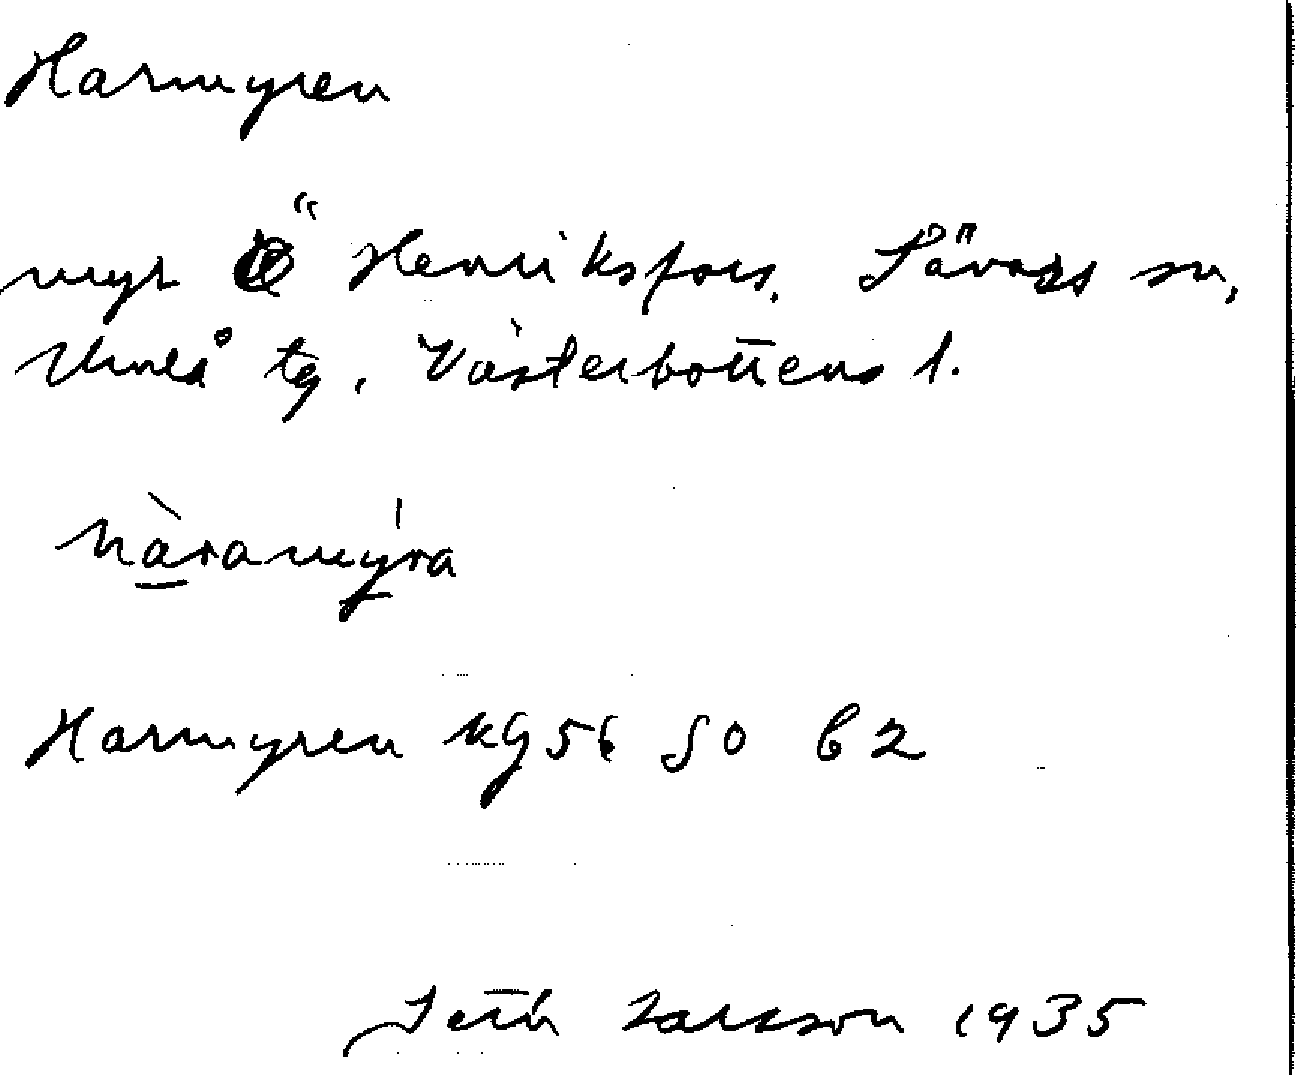 Harmyren
myr Ö Henriksfors, Sävars sn,
Umeå tg, Västerbottens l.
hàramy̍ra
Harmyren kg 56 50 b 2
Seth Larsson 1935